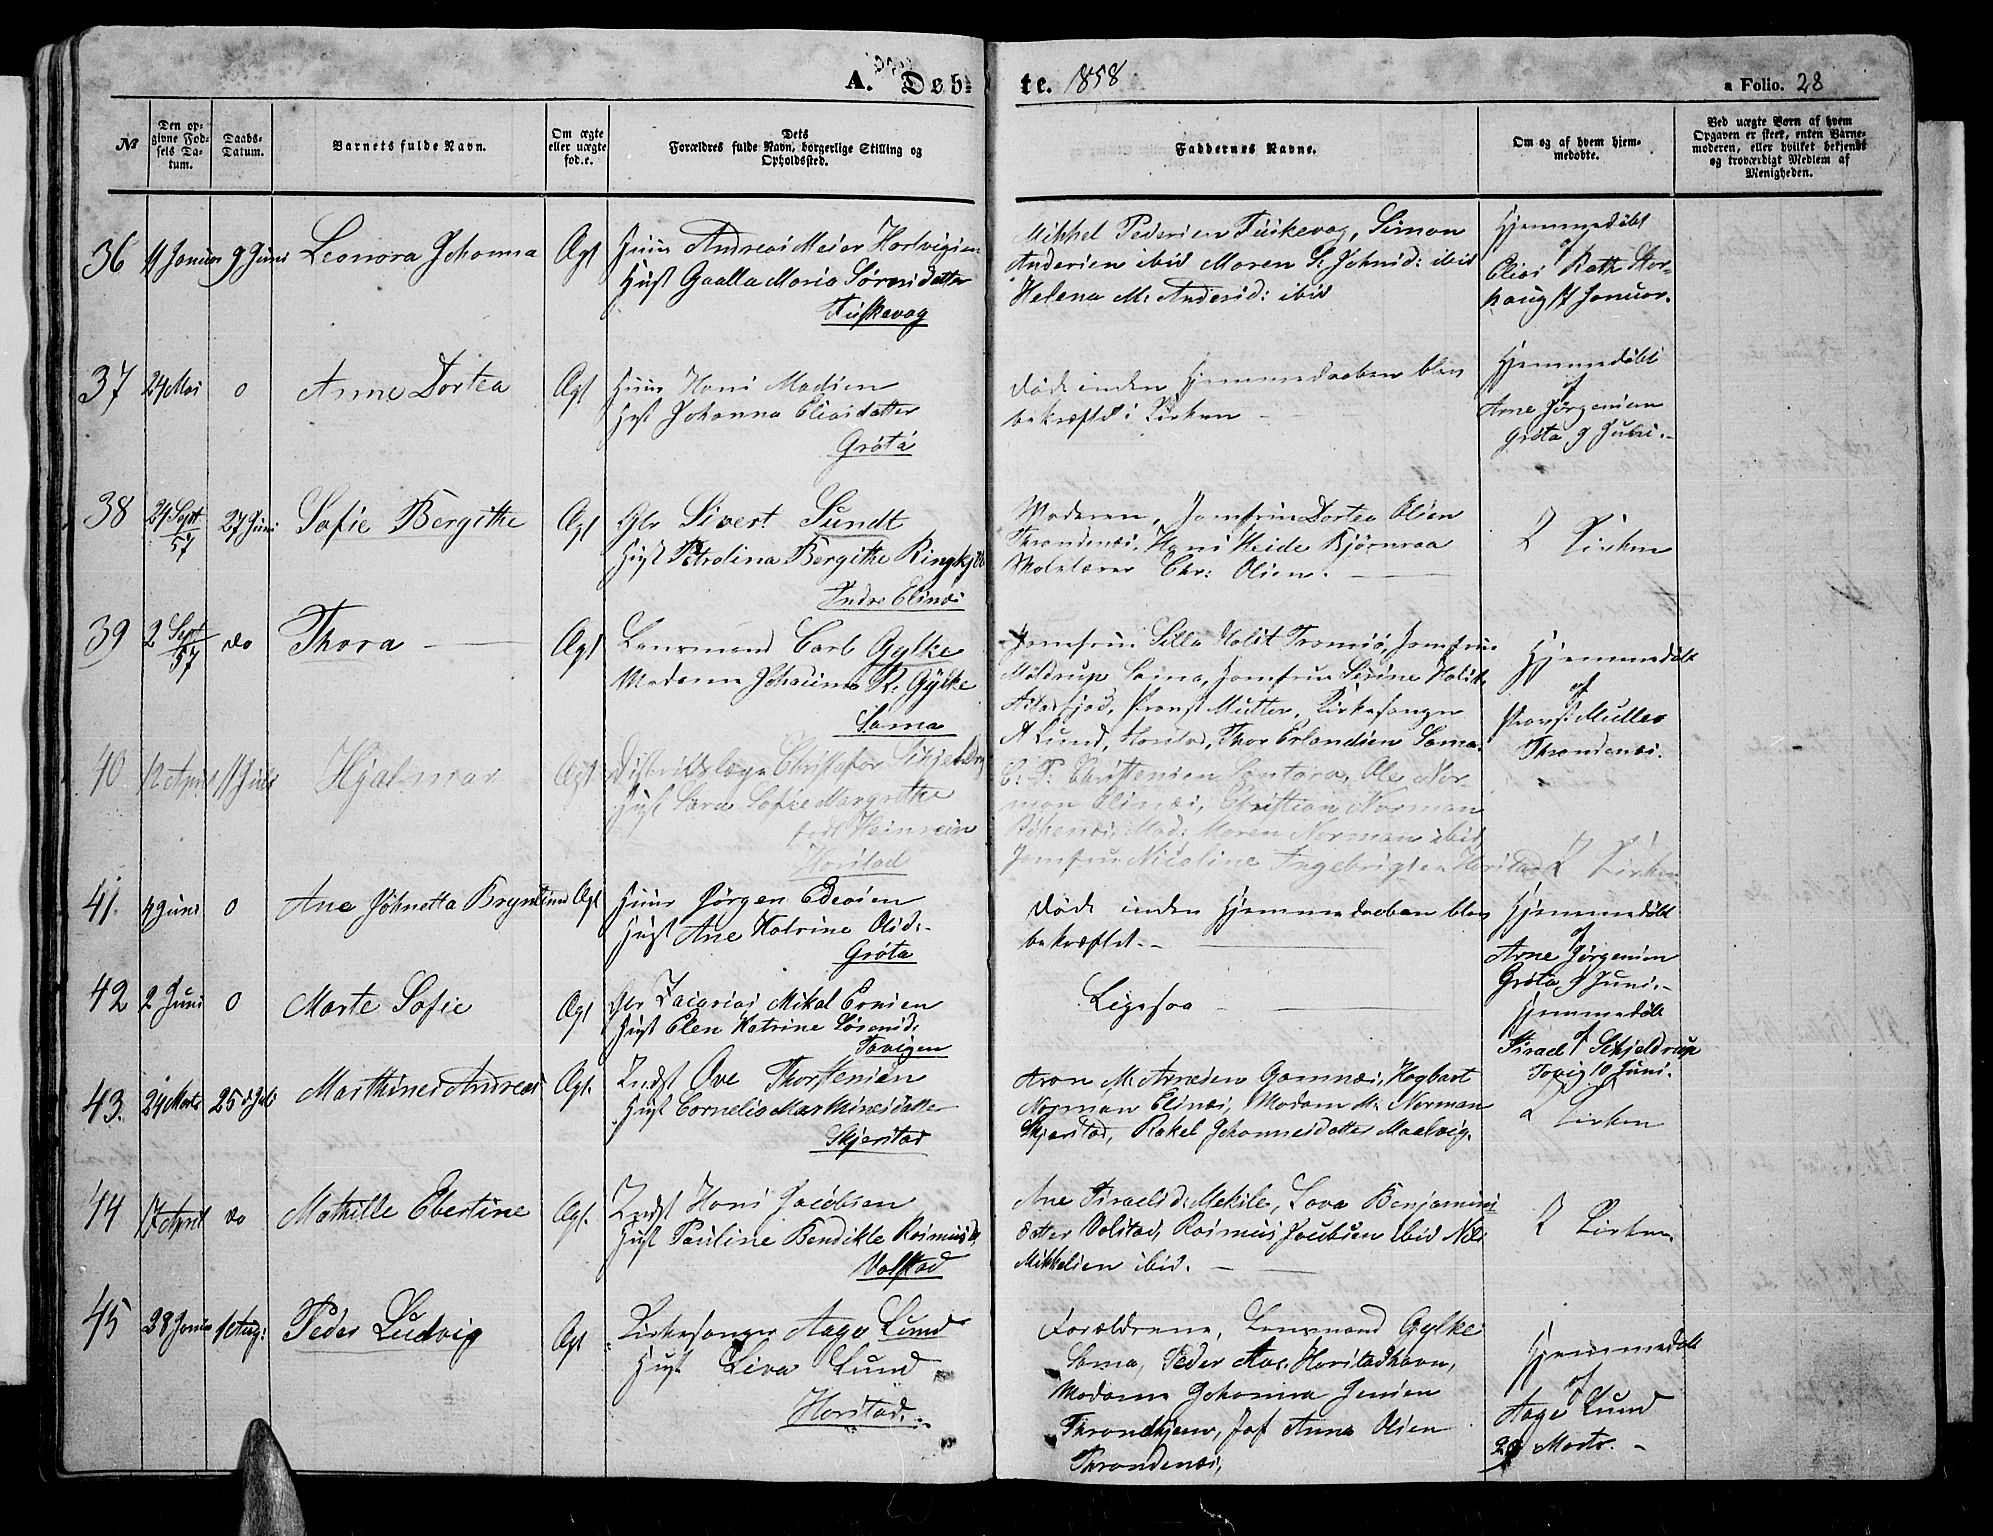 A. Døb-
te. 1858
a Folio. 28
№
Den op-
givne Fød-
sels Da-
tum.
Daabs-
Datum.
Barnets fulde Navn.
Om ægte
eller uægte
fød.e.
Dets
Forældres fulde Navn, borgerlige Stilling og
Opholdssted.
Faddernes Navne.
Om og af hvem hjem-
medøbte.
Ved uægte Børn af hvem
Opgaven er skeet, enten Barne-
moderen, eller hvilket bekjendt
og troværdigt Medlem af
Menigheden.
36
9 Juni
Leonora Johanna
Ægt
Andreas Meier Hartvigsen
Hust Gaalla Maria Sørensdatter
Fiskevog
Mikkel Pedersen Fiskevog, Simon
Andersen ibid Maren S: Johnsd: ibid
Helena M: Andersd: ibid
Hjemmedøbt
af
Elias Rath Stor-
haug 17 Januar.
37
24 Mai
0
Anne Dortea
Ægt
Huus Hans Madsen
Hust Johanna Eliasdatter
Grøtø
Døde inden Hjemmedaaben blev
bekræftet i Kirken
Hjemmedøbt
af
Arne Jørgensen
Grøtø 9 Juni.
38
24 Sept
57
27 Juni
Sofie Bergithe
Ægt
Sivert Sundt
Hust Petrolina Bergithe Ringkjøb
Indre Elinæs
Moderen, Jomfru Dortea Olsen
Throndenæs, Hans Heide Bjørnraa
Chr: Olsen.
I Kirken
39
2 Sept
57
do
Thora
Ægt
Lensmand Carl Gylke
Madame Johanna R: Gylke
Sama
Jomfru Silla Holst Tromsø, Jomfru
Moldrup Sama, Jomfru Serine Holst
Provst Müller, Kirkesanger
A Lund, Harstad, Thor Erlandsen Sama.
Hjemmedøbt
af
Provst Müller
Throndenæs.
40
12 April
11 Juli
Hjalmar
Ægt
Distriktslæge Christofer
Hust Sara Sofie Margrethe
født Heinrein
Harstad
C: P: Christensen Ole Nor-
man Elinæs, Christian Norman
Mad: Maren Norman ibid
Jomfru Nicoline Ingebrigtsen Harstad
I Kirken
41.
4 Juni
0
Ane Johnetta
Ægt
Huus Jørgen Edeasen
Hust Ane Katrine Olsd:
Grøtø
Døde inden Hjemmedaaben blev
bekræftet.
Hjemmedøbt
af
Arne Jørgensen
Grøtø 9 Juni.
42
2 Juni
0
Marte Sofie
Ægt
Zacarias Mikal Ernsen
Hust Elen Katrine Sørensd:
Tovigen
Ligesaa
Hjemmedøbt
af
Israel Schjeldrup
Tovig 10 Juni.
43.
24 Marts
25 d Juli
Marthines Andreas
Ægt.
Indst Ove Thorstensen
Hust Cornelia Marthinesdatter
Skjærstad
Aron M: Arnesen Gamnæs, Hagbart
Norman Elinæs, Madam M: Norman
Skjærstad, Rakel Johannesdatter Maalvig.
I Kirken
44
17 April
do
Mathille Ebertine
Ægt.
Indst Hans Jacobsen
Hust Pauline Bendikte Rasmusd
Volstad
Ane Israelsd: Mekile, Lova Benjamins
datter Volstad, Rasmus Jacobsen ibid Nils
Mikkelsen ibid.
I Kirken.
45
1 Aug:
Peder Ludvig
Ægt
Kirkesanger Aage Lund
Hust Liva Lund
Harstad.
Forældrene, Lensmand Gylke
Sama, Peder Aas. Harstadhavn,
Madame Johanna Jensen
Throndhjem, Jof Anna Olsen
Throndenæs,
Hjemmedøbt
af
Aage Lund
29 Marts.